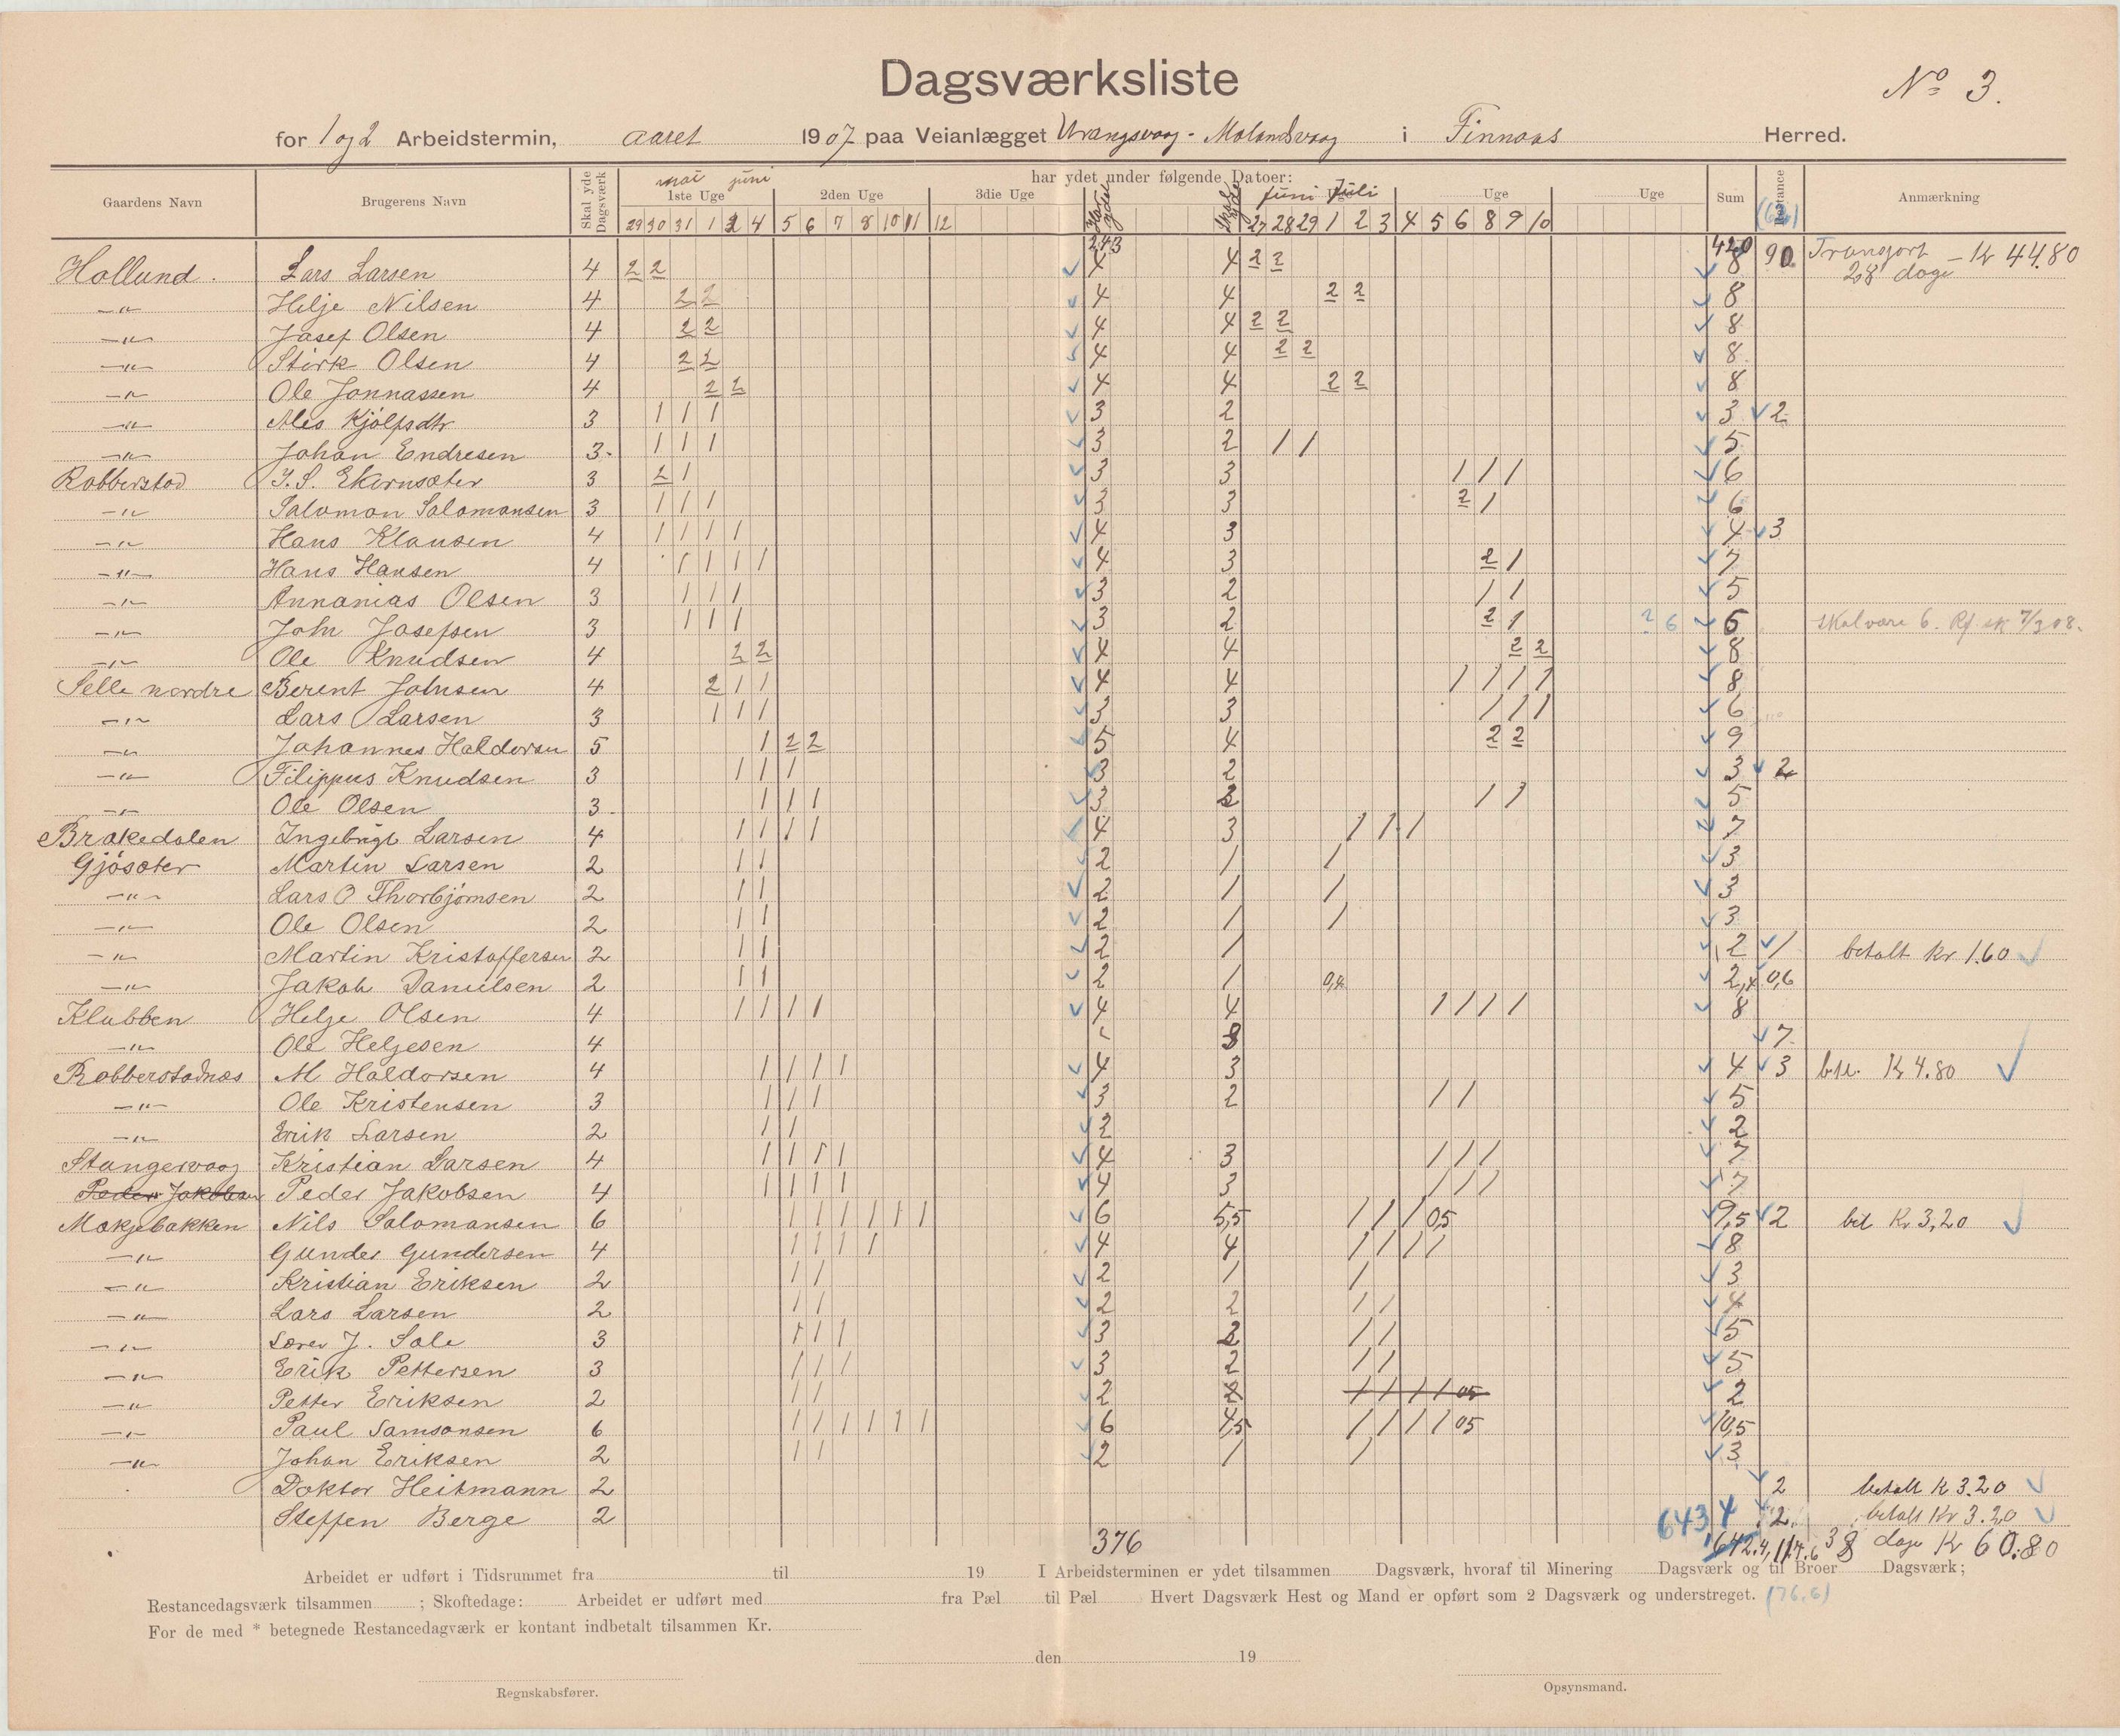 Dagsværksliste
No 3.
for 1 og 2 Arbeidstermin, aaret 1907 paa Veianlægget Urangsvaag - Molandsvaag i Finnaas Herred.
Gaardens Navn Brugerens Navn Skal yde Dagsværk har ydet under følgende Datoer: Sum Restance Anmærkning
mai juni 1ste Uge 2den Uge 3die Uge Har ydet Skal yde juni Juli Uge Uge Uge (62)
29 30 31 1 2 4 5 6 7 8 10 11 12 27 28 29 1 2 3 4 5 6 8 9 10
243 420 90 Transport 28 dage - Kr 44.80
Hollund. Lars Larsen 4 2 2 4 4 2 2 8
-"- Helje Nilsen 4 2 2 4 4 2 2 8
-"- Josef Olsen 4 2 2 4 4 2 2 8
-"- Stirk Olsen 4 2 2 4 4 2 2 8
-"- Ole Jonnassen 4 2 2 4 4 2 2 8
-"- Ales Kjölfsdtr 3 1 1 1 3 2 3 2
-"- Johan Endresen 3 1 1 1 3 2 1 1 5
Robberstad I. S. Ekornsæter 3 2 1 3 3 1 1 1 6
-"- Salomon Salomonsen 3 1 1 1 3 3 2 1 6
-"- Hans Klausen 4 1 1 1 1 4 3 4 3
-"- Hans Hansen 4 1 1 1 1 4 3 2 1 7
-"- Annanias Olsen 3 1 1 1 3 2 1 1 5
-"- John Josefsen 3 1 1 1 3 2 2 1 ? 6 6 skal være 6. Rf. sk 7/3 08.
-"- Ole Knudsen 4 2 2 4 4 2 2 8
Selle nordre Berent Johnsen 4 2 1 1 4 4 1 1 1 1 8
-"- Lars Larsen 3 1 1 1 3 3 1 1 1 6
-"- Johannes Haldorsen 5 1 2 2 5 4 2 2 9
-"- Filippus Knudsen 3 1 1 1 3 2 3 2
-"- Ole Olsen 3 1 1 1 3 2 1 1 5
Brakedalen Ingebrigt Larsen 4 1 1 1 1 4 3 1 1 1 7
Gjösæter Martin Larsen 2 1 1 2 1 1 3
-"- Lars O Thorbjörnsen 2 1 1 2 1 1 3
-"- Ole Olsen 2 1 1 2 1 1 3
-"- Martin Kristoffersen 2 1 1 2 1 2 1 betalt Kr 1.60
-"- Jakob Danielsen 2 1 1 2 1 0,4 2,4 0,6
Klubben Helge Olsen 4 1 1 1 1 4 4 1 1 1 1 8
-"- Ole Heljesen 4 8 7
Robberstadnæs M Haldorsen 4 1 1 1 1 4 3 4 3 btl. Kr 4.80
-"- Ole Kristensen 3 1 1 1 3 2 1 1 5
-"- Erik Larsen 2 1 1 2 2
Stangervaag Kristian Larsen 4 1 1 1 1 4 3 1 1 1 7
Peder Jakobsen Peder Jakobsen 4 1 1 1 1 4 3 1 1 1 7
Mokjebakken Nils Salomansen 6 1 1 1 1 1 1 6 5,5 1 1 1 05 9,5 2 btl Kr 3,20
-"- Gunder Gundersen 4 1 1 1 1 4 4 1 1 1 1 8
-"- Kristian Eriksen 2 1 1 2 1 1 3
-"- Lars Larsen 2 1 1 2 2 1 1 4
-"- Lærer J. Sale 3 1 1 1 3 2 1 1 5
-"- Erik Pettersen 3 1 1 1 3 2 1 1 5
-"- Petter Eriksen 2 1 1 2 1 1 1 1 05 2
-"- Paul Samsonsen 6 1 1 1 1 1 1 6 4,5 1 1 1 1 05 10,5
-"- Johan Eriksen 2 1 1 2 1 1 3
Doktor Heitmann 2 2 betalt K 3.20
Steffen Berge 2 2 betalt Kr 3.20
643,4
376 642.4 114.6 38 dage Kr 60.80
Arbeidet er udført i Tidsrummet fra til 19 I Arbeidsterminen er ydet tilsammen Dagsværk, hvoraf til Minering Dagsværk og til Broer Dagsværk;
Restancedagsværk tilsammen ; Skoftedage: Arbeidet er udført med fra Pæl til Pæl Hvert Dagsværk Hest og Mand er opført som 2 Dagsværk og understreget. (76,6)
For de med * betegnede Restancedagværk er kontant indbetalt tilsammen Kr.
den 19
Regnskabsfører. Opsynsmand.